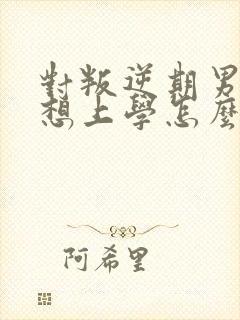 對叛逆期男
想上學怎麼
阿希里